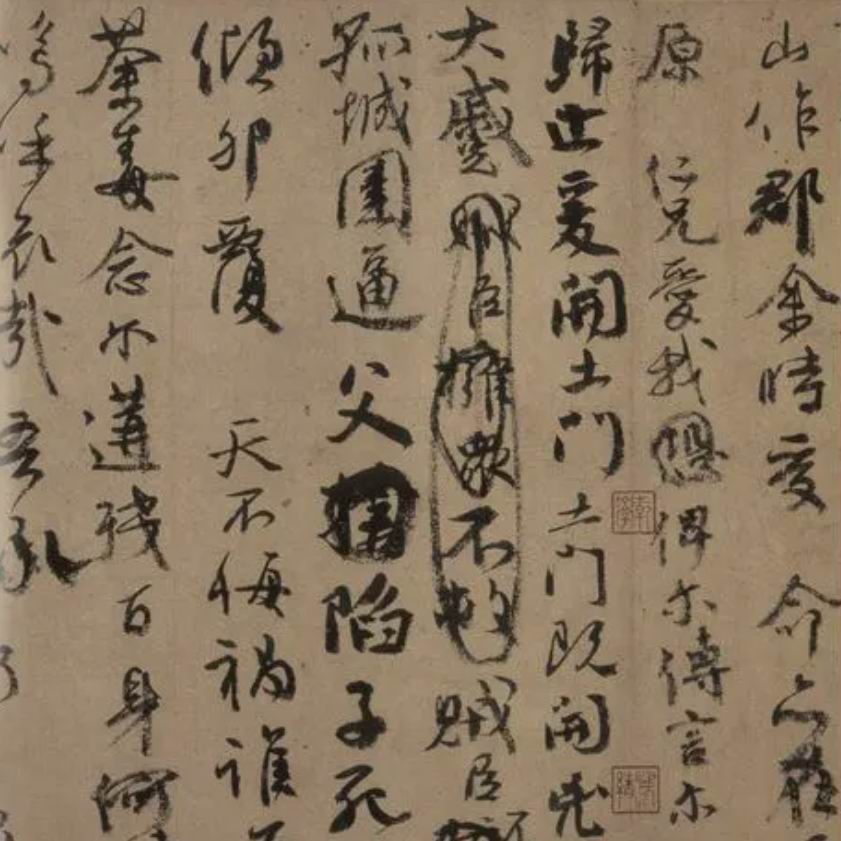 山作郡余時受命亦在
原仁兄愛我恐俾尔傳言尔
歸止爰開土門土門既開兇
大蹙賊臣擁衆不救賊臣
孤城圍逼父陷子死
傾卵覆天不悔禍誰
荼毒念尔遘殘百身何
嗚呼哀哉吾承